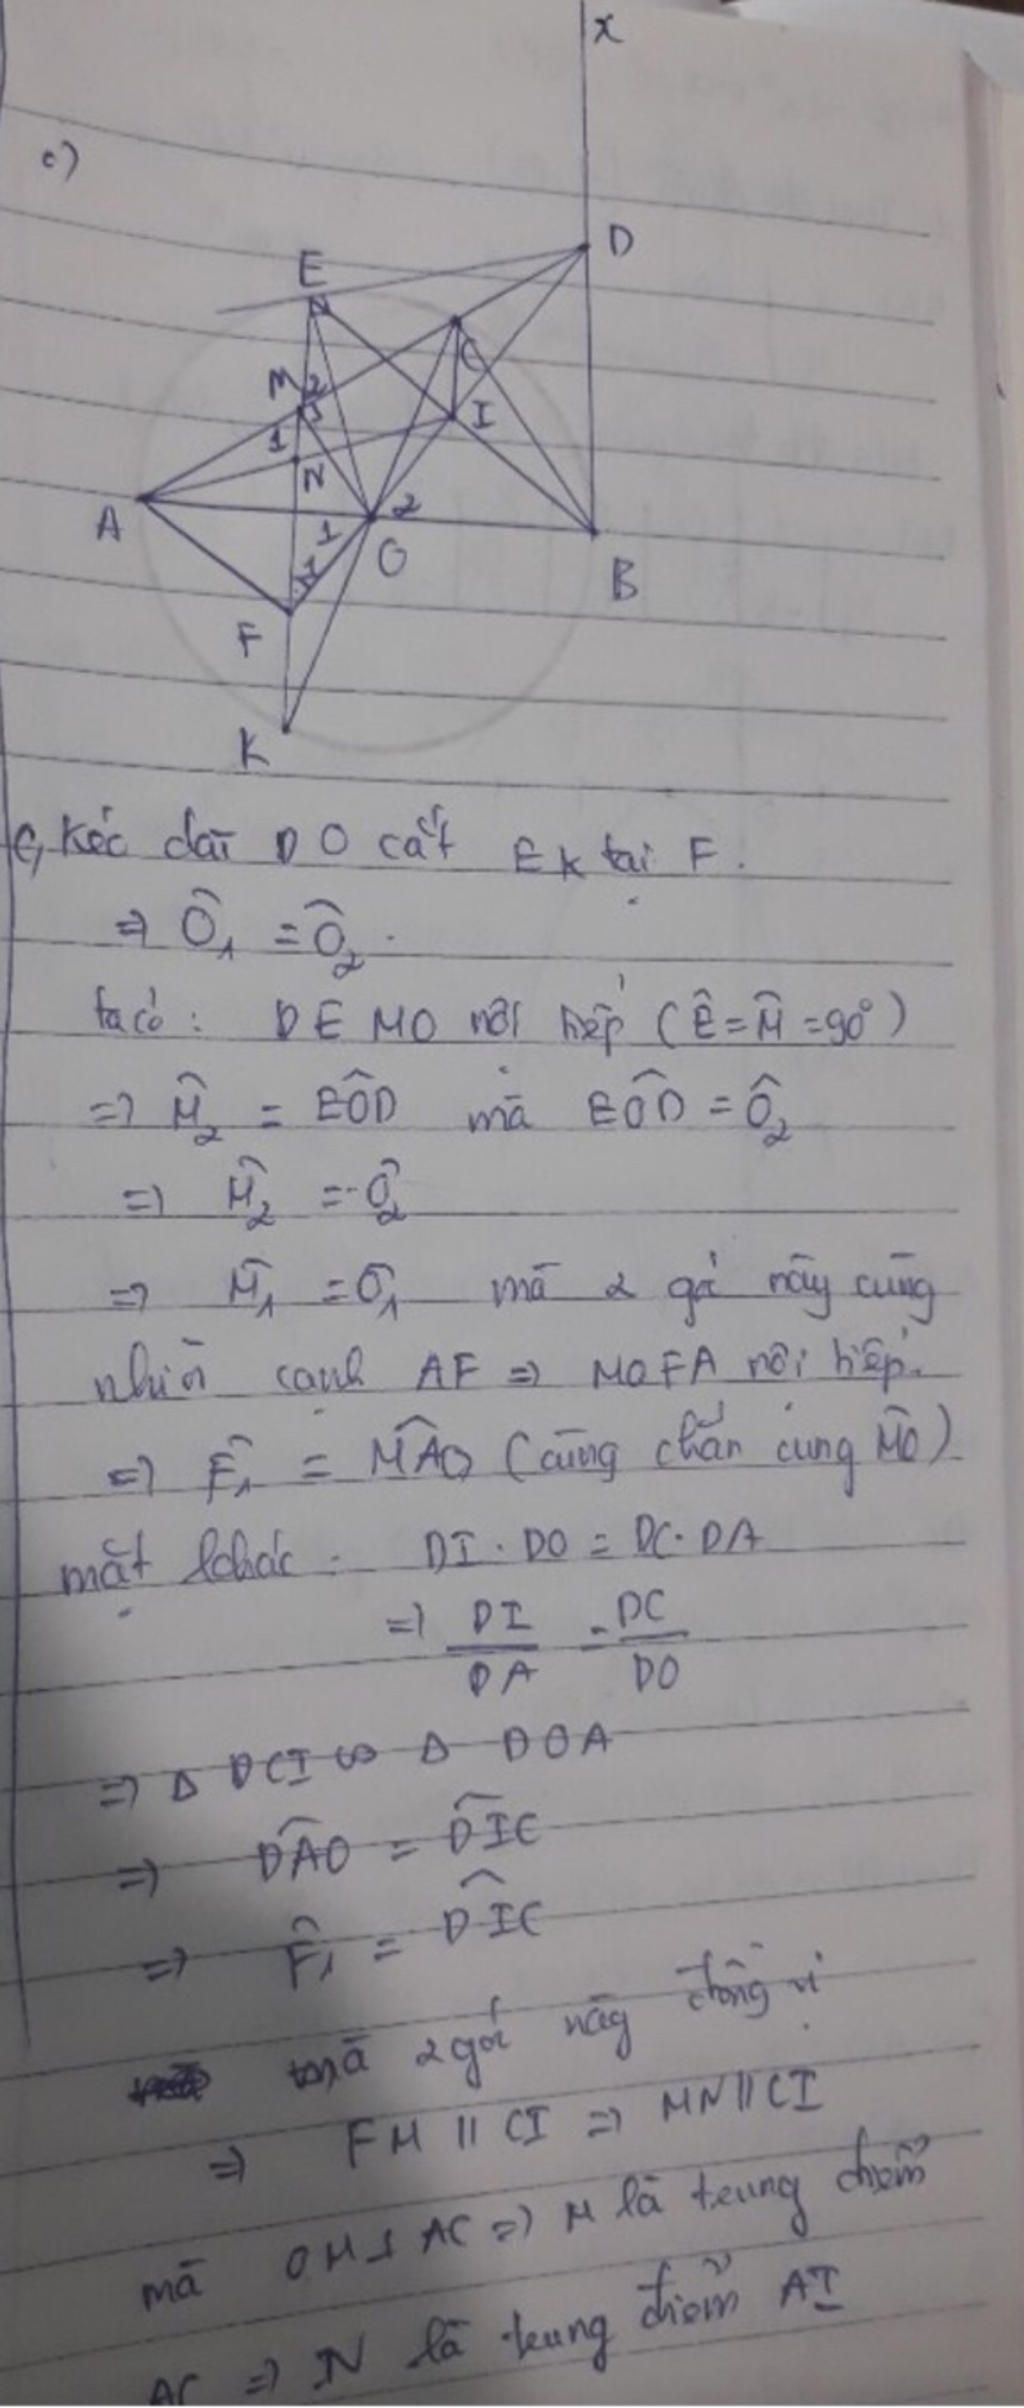 x
c)
D
E
M 2
C
1
I
N
A
1
2
O
B
1
F
K
c, Kéo dài DO cắt EK tại F.
=> Ô1 = Ô2.
ta có: DEMO nội tiếp (Ê = M̂ = 90°)
=> M̂2 = EÔD mà EÔD = Ô2
=> M̂2 = Ô2
=> M̂1 = Ô1 mà 2 góc này cùng
nhìn cạnh AF => MOFA nội tiếp.
=> F̂1 = MÂO (cùng chắn cung MO)
mặt khác: DI . DO = DC . DA
=> DI/DA = DC/DO
=> Δ DCI ∽ Δ DOA
=> DÂO = DÎC
=> F̂1 = DÎC
mà 2 góc này đồng vị
=> FM // CI => MN // CI
mà OM ⊥ AC => M là trung điểm
AC => N là trung điểm AI